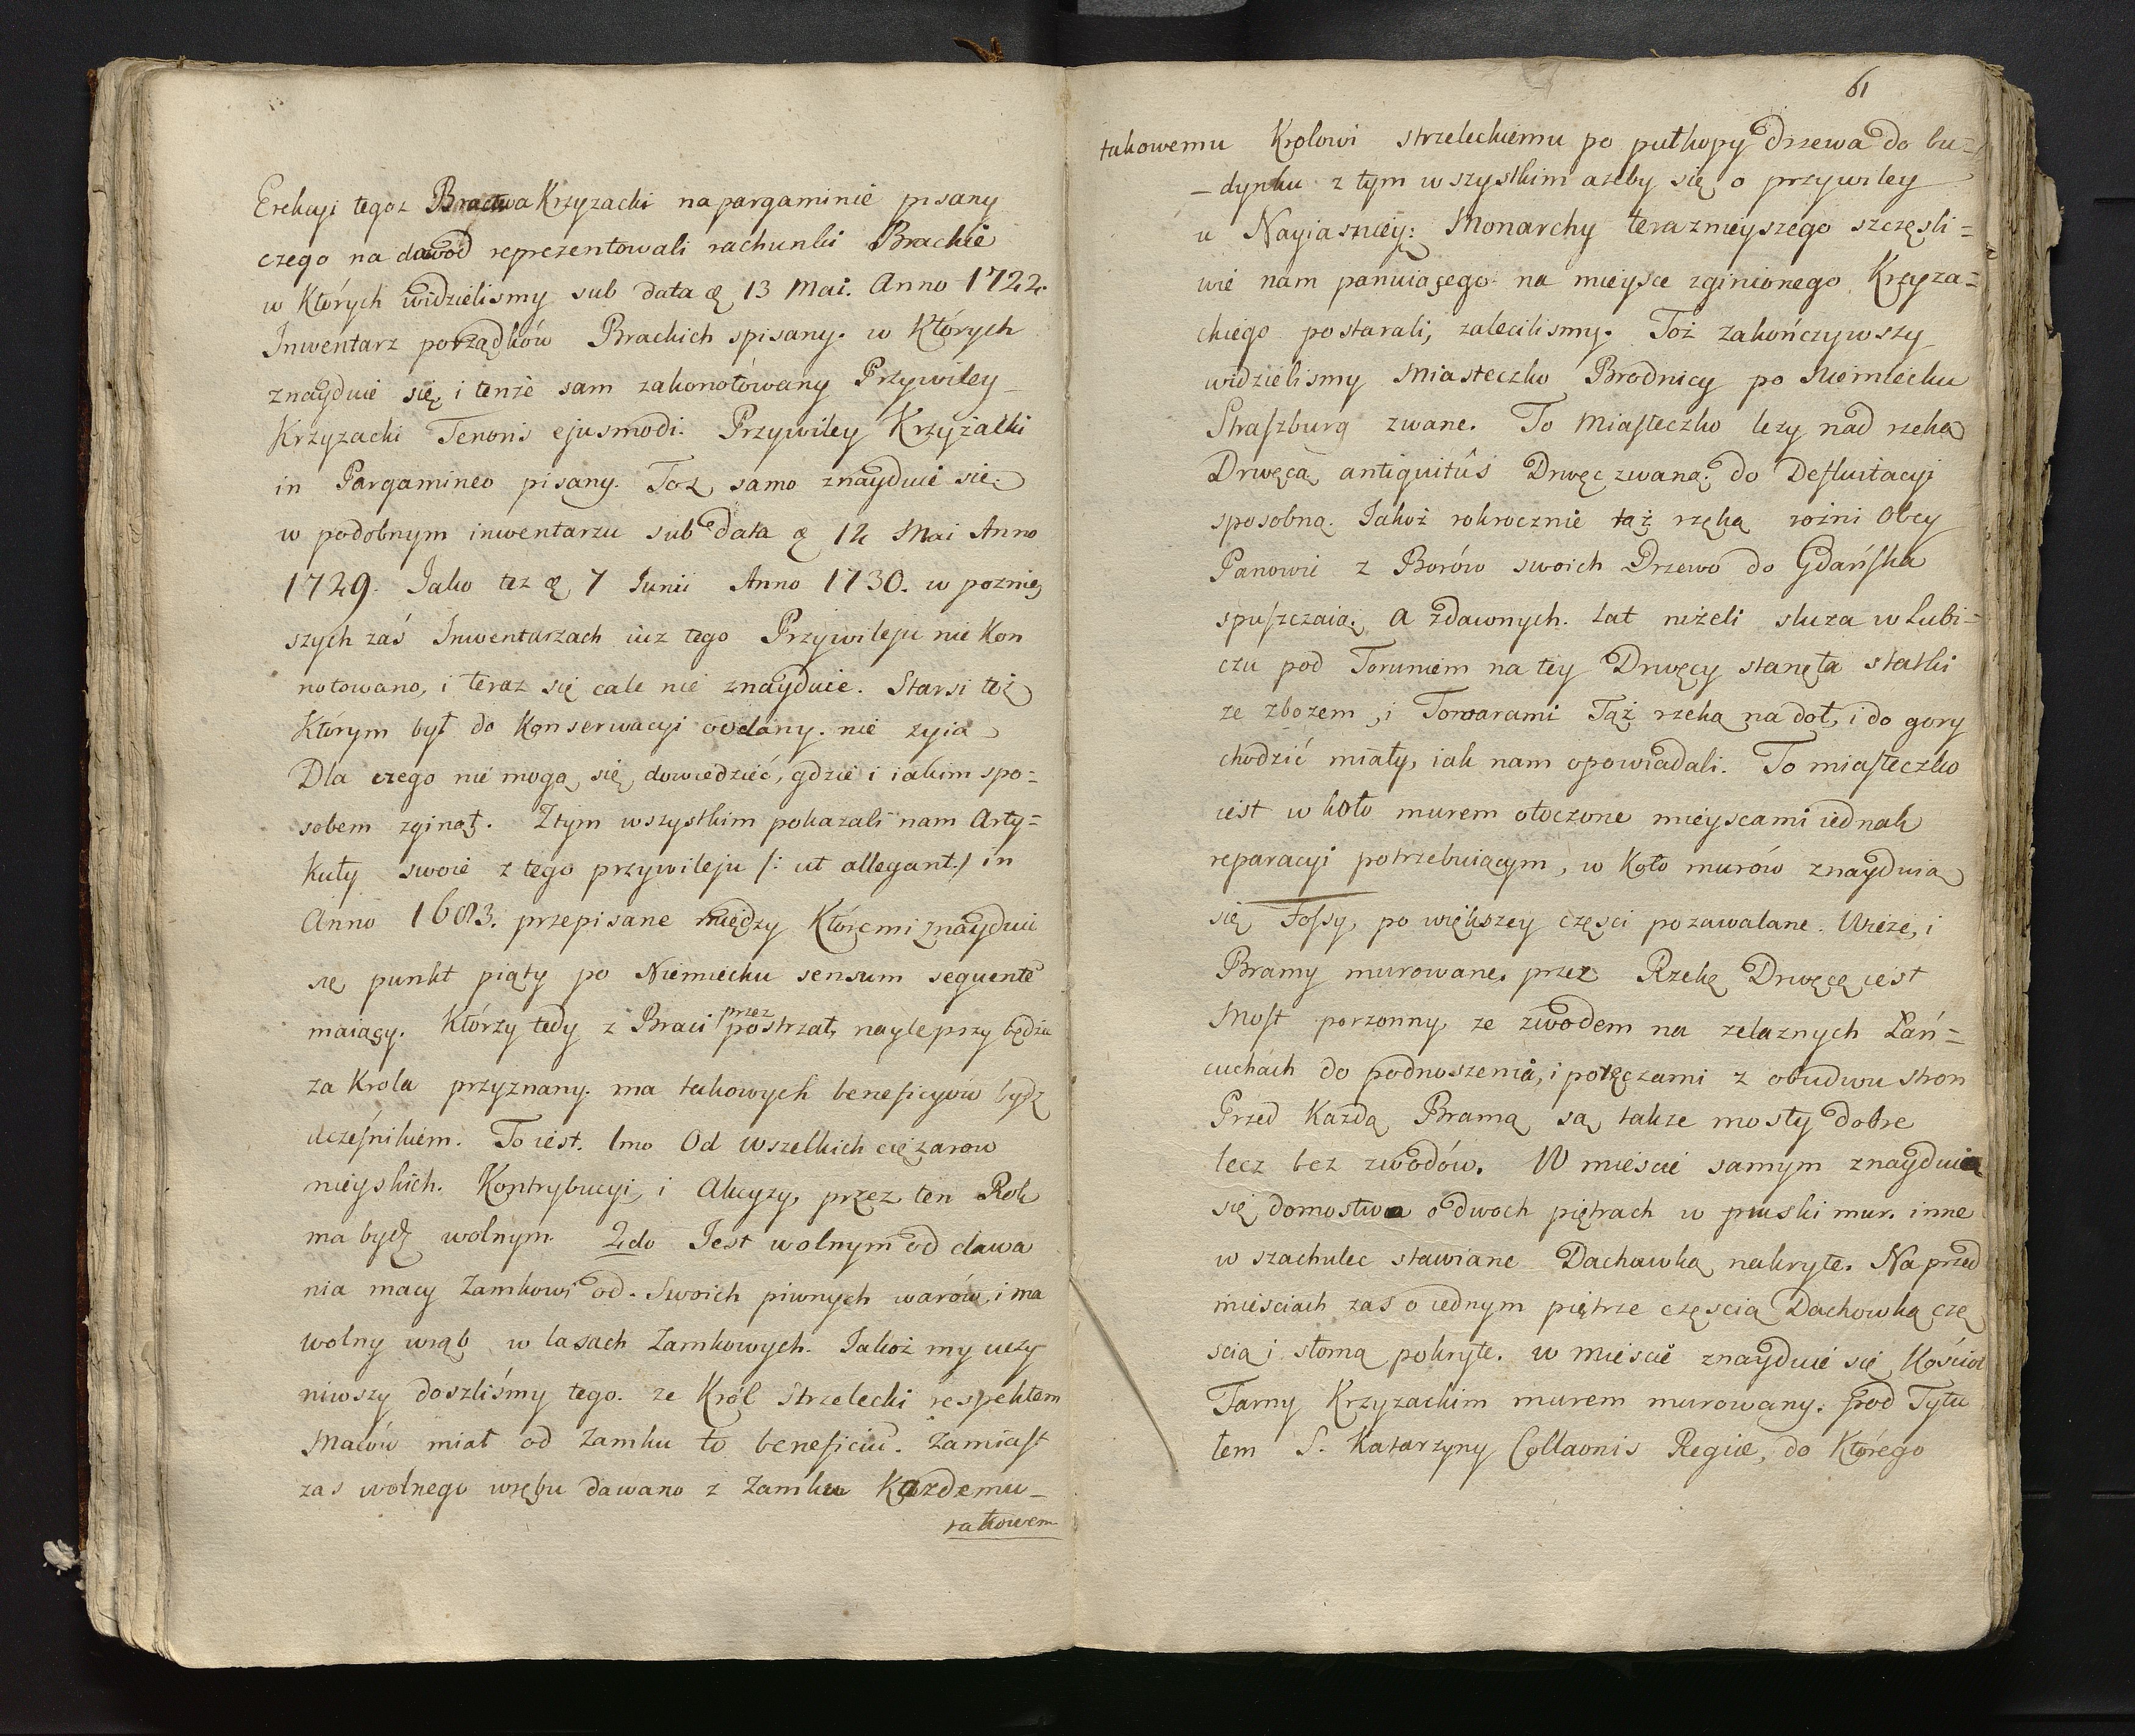 Erekcyi tegoz Bractwa Krzyzacki na pargaminie pisany
czego na dowod reprezentowali rachunki Brackie
w Których widzielismy sub data 13 Mai. Anno 1722.
Inwentarz porządków Brackich spisany. w Których
znayduie się i tenze sam zakonotowany Przywiley
Krzyzacki Tenoris ejusmodi. Przywiley Krzyzacki
in Pargamineo pisany. Toz samo znayduie się
w podobnym inwentarzu sub data 12 Mai Anno
1729. Jako tez 7 Junii Anno 1730. w poznie
szych zaś Inwentarzach iuz tego Przywileju nie Kon
notowano, i teraz się cale nie znayduie. Starsi też
Którym był do Konserwacyi oddany. nie zyia
Dla czego nie mogą się dowiedzieć, gdzie i iakim spo=
sobem zginoł. Ztym wszystkim pokazali nam Arty=
kuły swoie z tego przywileju /: ut allegant./ in
Anno 1683. przepisane między Któremi znayduie
się punkt piąty po Niemiecku sensum sequente
maiący. Którzy tedy z Braci przez postrzał naylepszy będzie
za Krola przyznany. ma takowych beneficyow bydz
uczęśnikiem. To iest. 1mo Od wszelkich cięzarow
mieyskich. Kontrybucyi i Akcyzy, przez ten Rok
ma bydz wolnym. 2do Jest wolnym od dawa
nia macy Zamkowi od. Swoich piwnych warów, i ma
wolny wrąb w lasach Zamkowych. Jakoż my uczy
niwszy doszliśmy tego. ze Król Strzelecki respektem
Macow miał od Zamku to beneficiu. Zamiast
zas wolnego wrębu dawano z Zamku Kazdemu
takowem
61
takowemu Krolowi strzeleckiemu po pułkopy drzewa do bu=
dynku z tym wszystkim azeby się o przywiley
u Nayiasniey: Monarchy teraznieyszego szczęsli=
wie nam panuiącego na mieysce zginionego Krzyza=
ckiego postarali, zalecilismy. Toż zakończywszy
widzielismy Miasteczko Brodnicy po Niemiecku
Straszburg zwane. To Miasteczko lezy nad rzeką
Drwęcą antiquitûs Drwęc zwaną; do Defluitacyi
sposobną. Jakoż rokrocznie taż rzeką rożni Obcy
Panowie z Borów swoich Drzewo do Gdańska
spuszczaią. A zdawnych. lat niżeli sluza w Lubi=
czu pod Toruniem na tey Drwęcy stanęła statki
ze zbozem, i Towarami Tąż rzeką na doł, i do gory
chodzić miały, iak nam opowiadali. To miasteczko
iest w koło murem otoczone mieyscami iednak
reparacyi potrzebuiącym, w Koło murów znayduią
się Fossy, po większey częsci pozawalane. Wieze, i
Bramy murowane. przez Rzekę Drwęcę iest
Most porzonny ze zwodem na zelaznych Łań=
cuchach do podnoszenia, i poręczami z obudwu stron
Przed Kazdą Bramą są takze mosty dobre
lecz bez zwodów. W miescie samym znayduią
się domostwa o dwoch piętrach w pruski mur. inne
w szachulec stawiane Dachawką nakryte. Na przed
mieściach zas o iednym piętrze częscią Dachowką czę
scią i słomą pokryte. w Miescie znayduie się Kościoł
Farny Krzyzackim murem murowany. pod Tytu
łem S. Katarzyny Collaonis Regiæ, do Którego